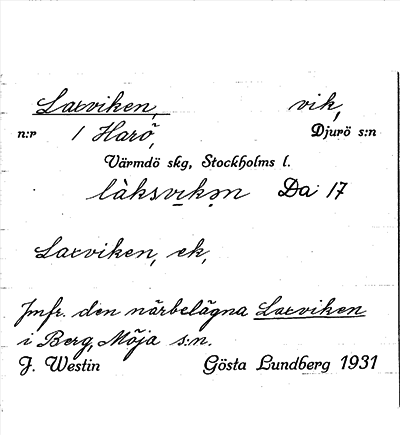 Laxviken, vik,
n:r 1 Harö, Djurö s:n
Värmdö skg, Stockholms l.
làksvi̱kə̣n Da 17
Laxviken, ek,
Jmfr. den närbelägna Laxviken
i Berg, Möja s:n.
J. Westin Gösta Lundberg 1931